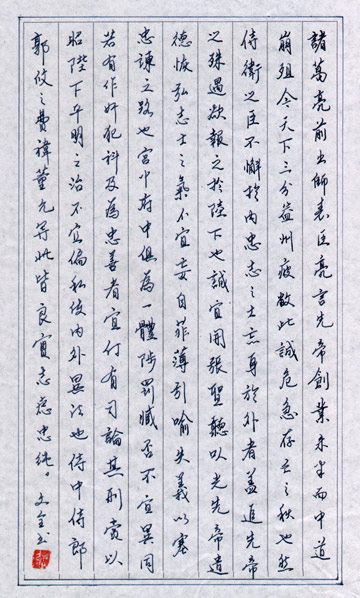 諸葛亮前出師表臣亮言先帝創業未半而中道
崩殂今天下三分益州疲敝此誠危急存亡之秋也然
侍衛之臣不懈於內忠志之士忘身於外者蓋追先帝
之殊遇欲報之於陛下也誠宜開張聖聽以光先帝遺
德恢弘志士之氣不宜妄自菲薄引喻失義以塞
忠諫之路也宮中府中俱為一體陟罰臧否不宜異同
若有作奸犯科及為忠善者宜付有司論其刑賞以
昭陛下平明之治不宜偏私使內外異法也侍中侍郎
郭攸之費禕董允等此皆良實志慮忠純。文全书